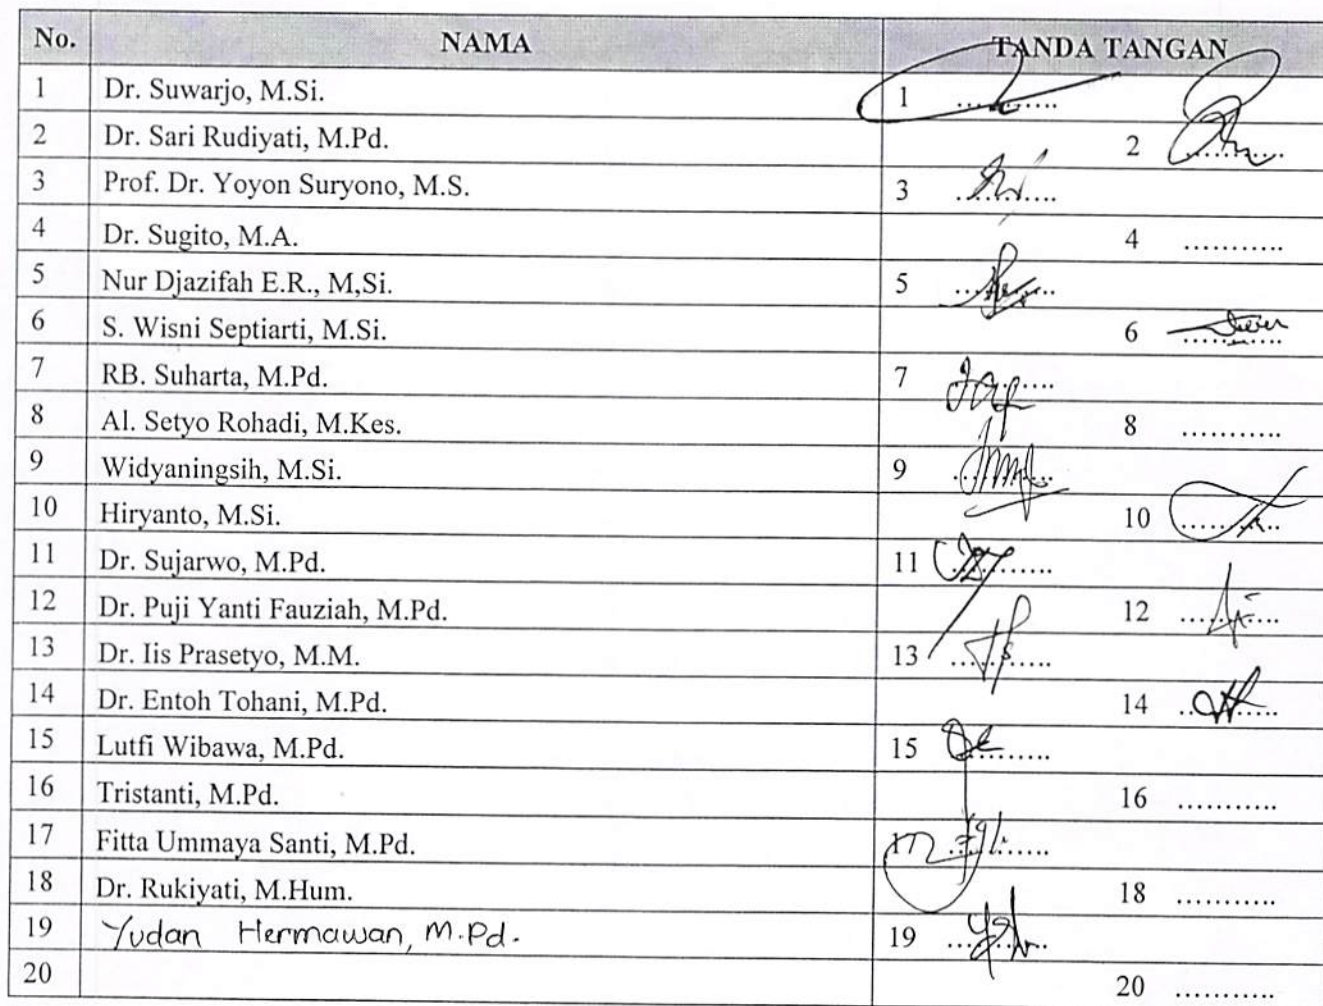 No. NAMA TANDA TANGAN
1 Dr. Suwarjo, M.Si. 1 ...........
2 Dr. Sari Rudiyati, M.Pd. 2 ...........
3 Prof. Dr. Yoyon Suryono, M.S. 3 ...........
4 Dr. Sugito, M.A. 4 ...........
5 Nur Djazifah E.R., M,Si. 5 ...........
6 S. Wisni Septiarti, M.Si. 6 ...........
7 RB. Suharta, M.Pd. 7 ...........
8 Al. Setyo Rohadi, M.Kes. 8 ...........
9 Widyaningsih, M.Si. 9 ...........
10 Hiryanto, M.Si. 10 ...........
11 Dr. Sujarwo, M.Pd. 11 ...........
12 Dr. Puji Yanti Fauziah, M.Pd. 12 ...........
13 Dr. Iis Prasetyo, M.M. 13 ...........
14 Dr. Entoh Tohani, M.Pd. 14 ...........
15 Lutfi Wibawa, M.Pd. 15 ...........
16 Tristanti, M.Pd. 16 ...........
17 Fitta Ummaya Santi, M.Pd. 17 ...........
18 Dr. Rukiyati, M.Hum. 18 ...........
19 Yudan Hermawan, M.Pd. 19 ...........
20 20 ...........